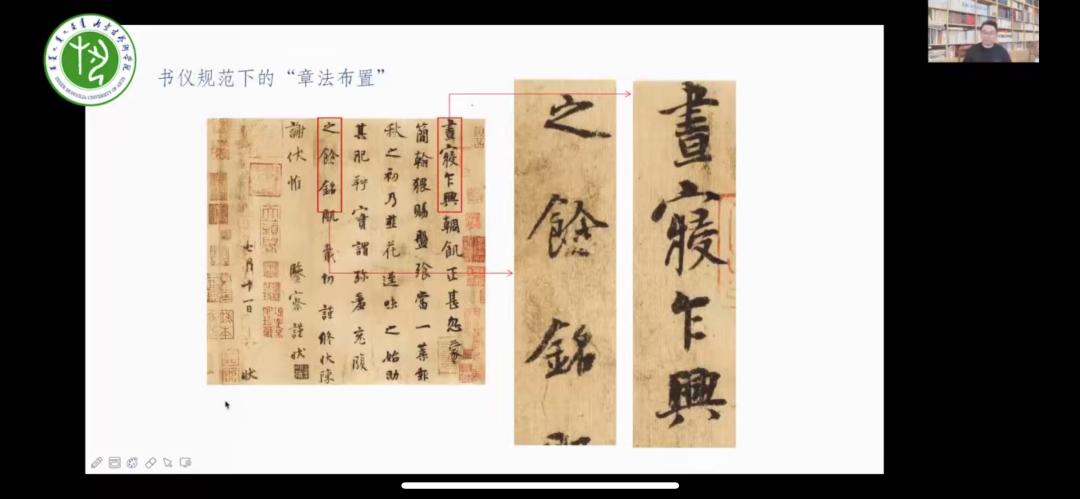 书仪规范下的“章法布置”
晝寢乍興輖飢正甚忽蒙
簡翰猥賜盤飧當一葉報
秋之初乃韭花逞味之始助
其肥羜實謂珍羞充腹
之餘銘肌載切謹修狀陳
謝伏惟鑒察謹狀
七月十一日狀
之餘銘
晝寢乍興
INNER MONGOLIA UNIVERSITY OF ARTS